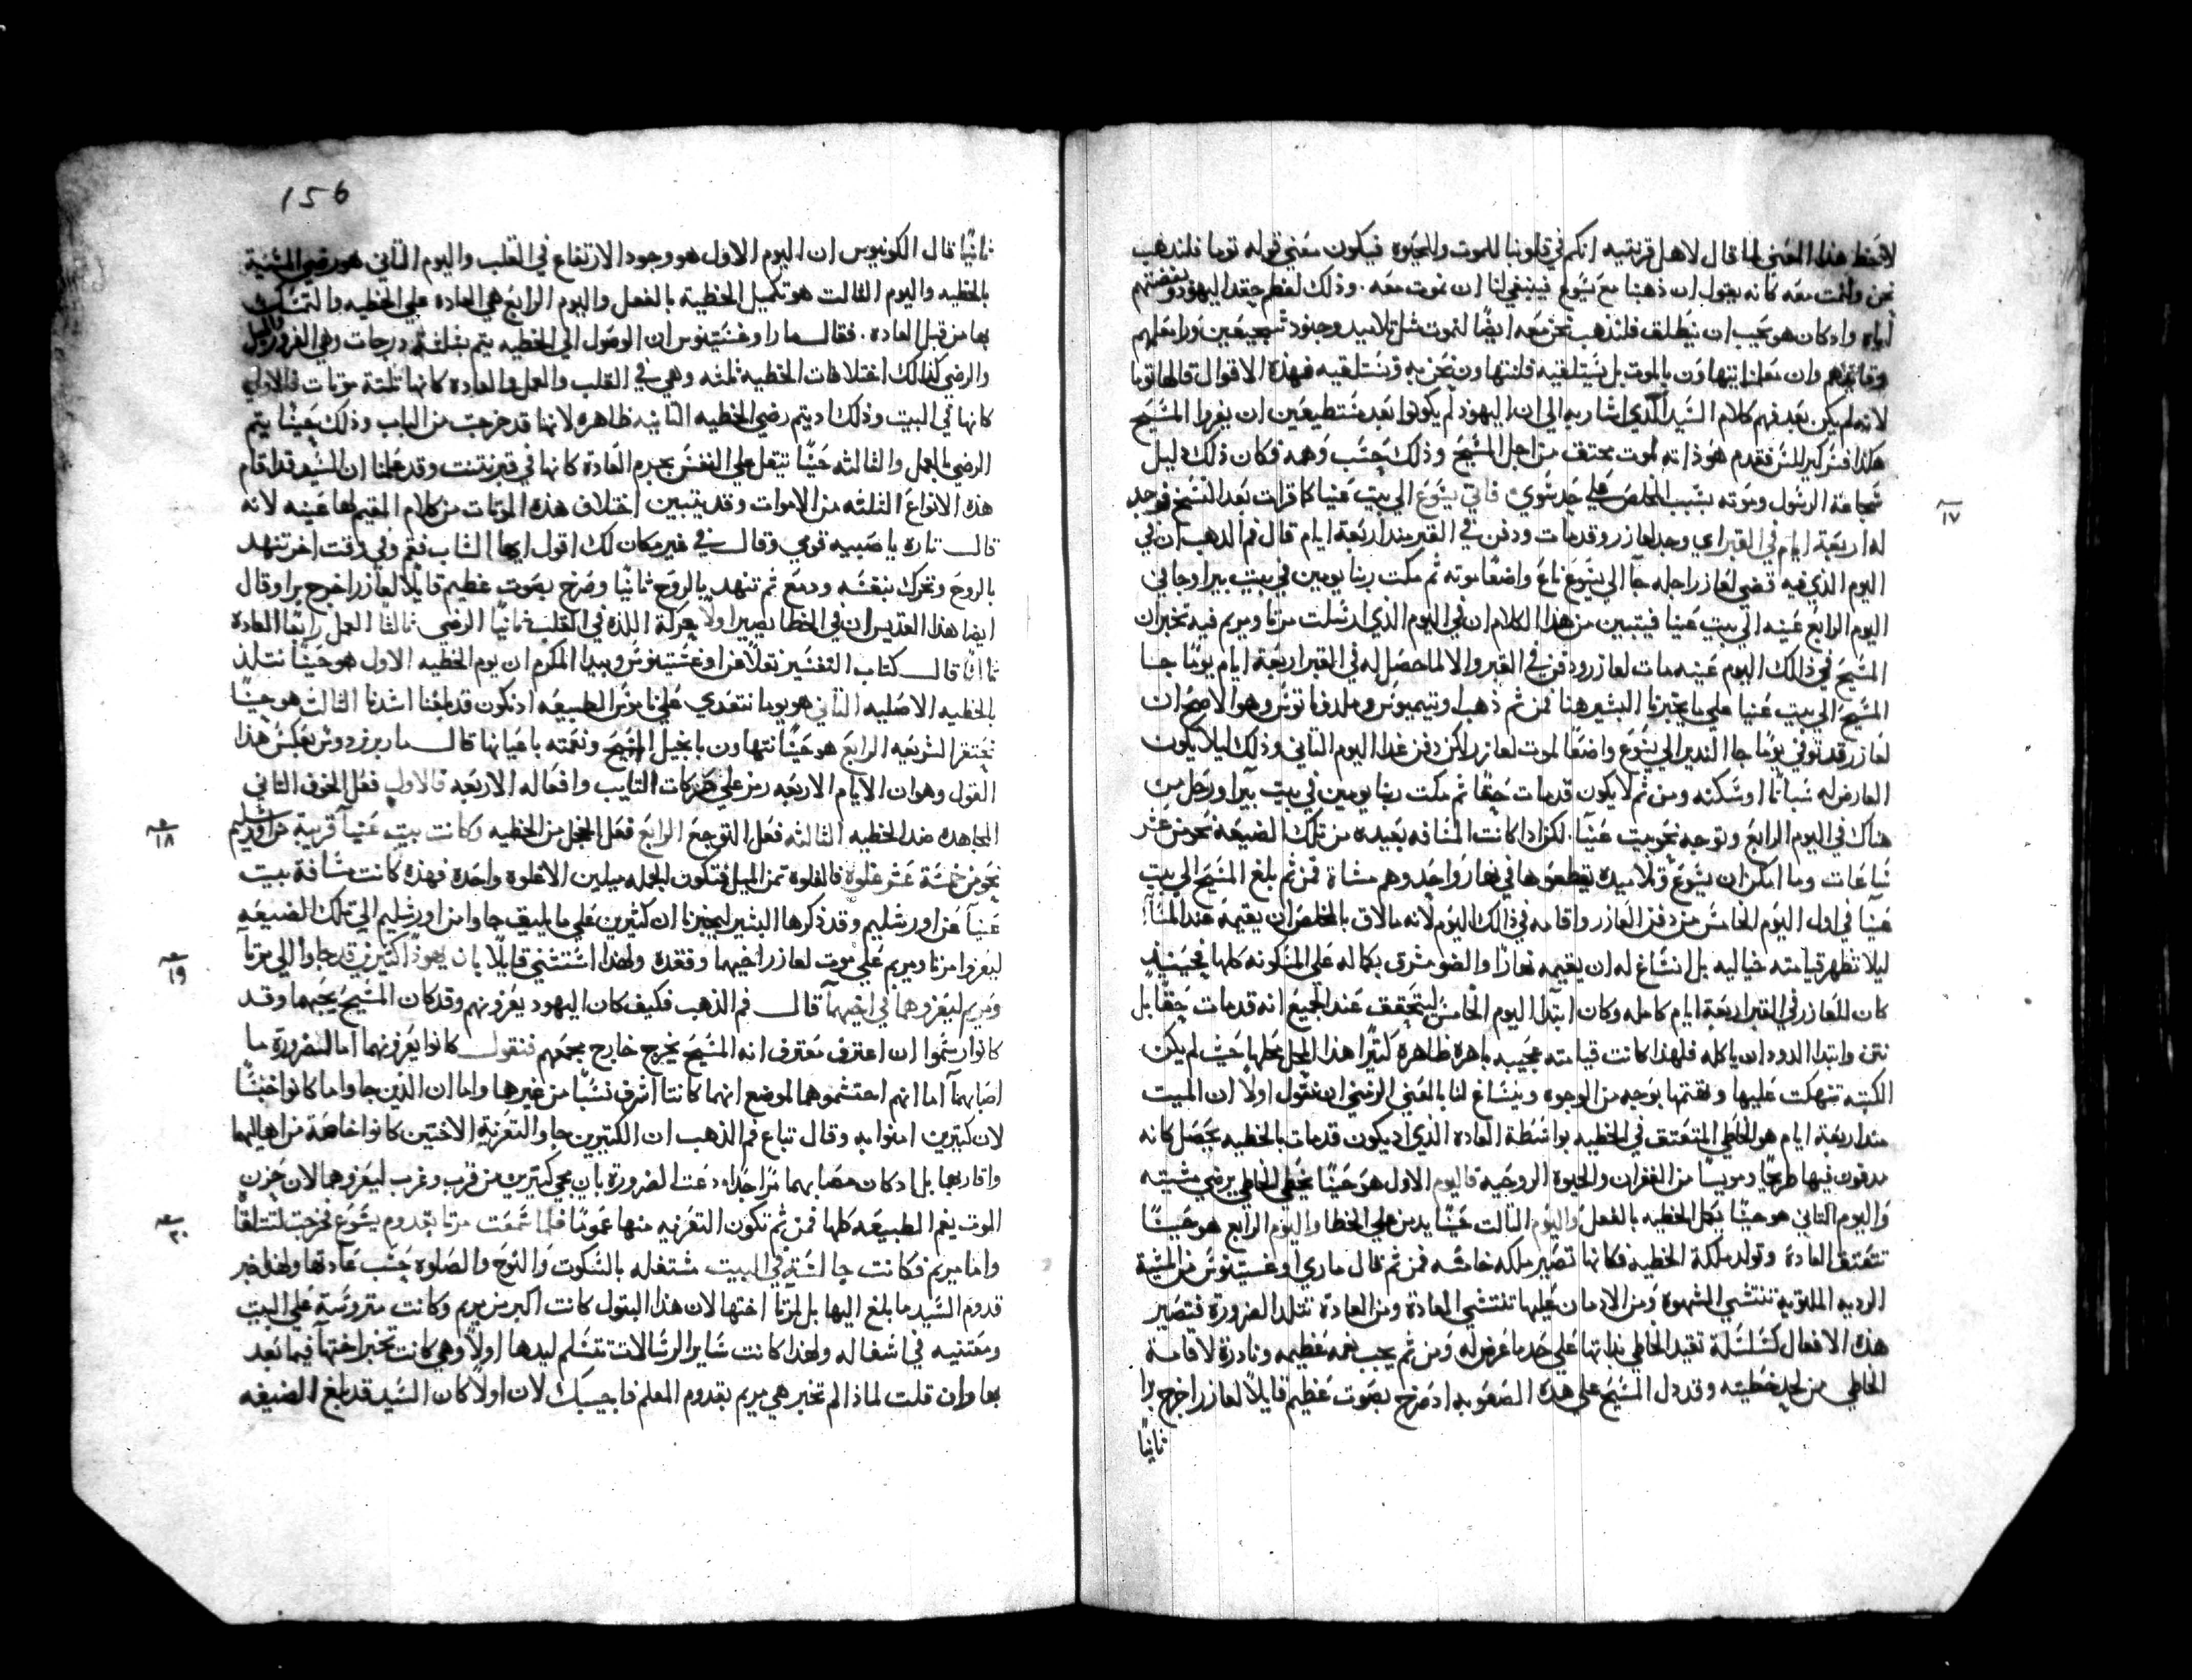 لاحظ هذا المعني لما قال لاهل قرنتيه انكم في قلوبنا للموت والحيوه فيكون معني قوله توما فلندهب
نحن ولنمت معه كانه يقول ان ذهبنا مع يسوع فينبغي لنا ان نموت معه. وذلك لعظم حقد اليهود وبغضتهم
اياه واد كان هو يحب ان ينطلق فلندهب نحن معه ايضًا لنموت مثل تلاميد وجنود شجيعين ورا معلمهم
وان معلمنا يتهاون بالموت بل يستلقيه فلنتهاون نحن به ونستلقيه فهذه الاقوال قالها توما
لانه لم يكن بعد فهم كلام السيد الذي اشار به الي ان اليهود لم يكونوا بعد مستطيعين ان يضروا المسيح
هكدا فسر كيرللس فقدم هو ذاته لموت محتقف من اجل المسيح وذلك حسب وهمه فكان ذلك دليل
شجاعة الرسول وموته بسبب المخلص علي حد سوي فاتي يسوع الي بيت عنيا كما قرات بعد النسخ فوجد
١٧
له اربعة ايام في القبر اي وجد لعازر وقد مات ودفن في القبر مند اربعة ايام قال فم الدهب ان في
اليوم الذي فيه قضي لعازر اجله جآ الي يسوع ناعٍ واضعًا موته ثم مكث ربنا يومين في بيت بيرا وجا في
اليوم الرابع عينه الي بيت عنيا فيتبين من هذا الكلام ان في اليوم الذي ارسلت مرتا ومريم فيه تخبران
المسيح في ذالك اليوم عينه مات لعازر ودفن في القبر والا لما حصل له في القبر اربعة ايام يومًا جا
المسيح الي بيت عنيا علي ما يخبرنا البشير هنا فمن ثم ذهب اوتيميوس وملدوناتوس وهو الاصح ان
لعازر قد توفي يومًا جا الندير الي يسوع واضعًا موت لعازر لاكن دفن غدا اليوم التاني وذلك ليلا يكون
العارض له سباتًا او سكته ومن ثم لا يكون قد مات حقًا ثم مكث ربنا يومين في بيت بيرا ورحل من
هناك في اليوم الرابع وتوجه نحو بيت عنيا. لكن ادا كانت المسافه بعيده من تلك الضيعة نحو من عشر
ساعات وما امكن ان يسوع وتلاميده يقطعوها في نهار واحد وهم مشاة فمن ثم بلغ المسيح الي بيت
عنيا في اول اليوم الخامس من دفن لعازر واقامه في ذالك اليوم لانه ما لاق بالمخلص ان يقيمه عند المسآ
ليلا تظهر قيامته خياليه بل انساغ له ان يقيمه نهارًا والضو مشرق بكماله علي المسكونه كلها فحينيدٍ
كان للعازر في القبر اربعة ايام كامله وكان ابتدا اليوم الخامس ليتحقق عند الجميع انه قد مات حقًا بل
نتن وابتدا الدود ان ياكله فلهذا كانت قيامته عجيبه باهره ظاهرة كثيرًا هذا المحل محلها حيث لم يكن
الكتبه تنهكت عليها ونقمتها بوجه من الوجوه وينساغ لنا بالمعني الرمزي ان نقول اولا ان الميت
مند اربعة ايام هو الخاطي المتعتق في الخطيه بواسطة العاده الذي اد يكون قد مات بالخطيه يحصل كانه
مدفون فيها طريحًا ومويسًا من الغفران والحيوة الروحيه فاليوم الاول هو حينما يخطي الخاطي برضي مشيته
واليوم التاني هو حينما يكمل الخطيه بالفعل واليوم التالت حينما يدمن علي الخطا واليوم الرابع هو حينما
تتعتق العادة وتولد ملكة الخطيه فكانها تصير ملكه خامسه فمن ثم قال ماري اوغستينوس من المشية
الرديه الملتويه تنتشي الشهوة ومن الادمان عليها تنتشي العادة ومن العادة تتلد الضرورة فتصير
هذه الافعال كسلسلة تقيد الخاطي بداتها علي حد ما عرض له ومن ثم يجب نعمه عظيمه ونادرة لاقامة
الخاطي من لحد خطيته وقد دل المسيح علي هذه الصعوبه اد صرخ بصوت عظيم قايلًا لعازر اخرج برا
ثانيًا
156
ثانيًا قال الكونيوس ان اليوم الاول هو وجود الارتفاع في القلب واليوم التاني هو رضي المشية
بالخطيه واليوم الثالت هو تكميل الخطية بالفعل واليوم الرابع هي العاده علي الخطيه والتمسك
بها من قبل العاده. فقال مار اوغستينوس ان الوصول الي الخطيه يتم بثلثة درجات وهي الغرور والميل
والرضي كذالك اختلافات الخطية ثلثه وهي في القلب والعمل والعادة كانها ثلثة موتات فالاولي
كانها في البيت وذلك اد يتم رضي الخطيه التانيه ظاهره لانها قد خرجت من الباب وذلك حينما يتم
الرضي بالعمل والثالثه حينما تثقل علي النفس بجرم العادة كانها في قبر نتنت وقد علمنا ان السيد قد اقام
هذه الانواع الثلثه من الاموات وقد يتبين اختلاف هذه الموتات من كلام المقيم لها عينه لانه
قال تاره يا صبيه قومي وقال في غير مكان لك اقول ايها الشاب فقم وفي وقت اخر تنهد
بالروح وتحرك بنفسه ودمع ثم تنهد بالروح ثانيًا وصرخ بصوت عظيم قايلًا لعازر اخرج برا وقال
ايضا هذا القديس ان في الخطا يصير اولا حركة اللذه في القلب ثانيًا الرضي ثالثًا العمل رابعًا العادة
ثالثًا قال كتاب التفسير نقلًا عن اوغستينوس وبيدا المكرم ان يوم الخطيه الاول هو حينما نتلذ
بالخطيه الاصليه التاني هو يوما نتعدي علي ناموس الطبيعه اد نكون قد بلغنا اشدنا الثالت هو حينما
نحتقر الشريعه الرابع هو حينما نتهاون بانجيل المسيح ونعمته باعيانها قال مار برنردوس بعكس هذا
القول وهو ان الايام الاربعه رمز علي حركات التايب وافعاله الاربعه فالاول فعل الخوف التاني
المجاهده ضد الخطيه الثالثه فعل التوجع الرابع فعل الخجل من الخطيه وكانت بيت عنيآ قريبة من اورشليم
١٨
نحو من خمسة عشر غلوة فالغلوه تمن الميل فتكون الجمله ميلين الا غلوه واحدة فهذه كانت مسافة بيت
عنيآ عن اورشليم وقد ذكرها البشير ليخبرنا ان كثيرين علي ما يليق جاوا من اورشليم الي تلك الضيعه
ليعزوا مرتا ومريم علي موت لعازر اخيهما وفقده ولهذا استثني قايلًا بان يهودًا كثيرين قد جاوا الي مرتا
١٩
ومريم ليعزوهما في اخيهمآ قال فم الذهب فكيف كان اليهود يعزونهم وقد كان المسيح يحبهما وقد
كانوا رسموا ان اعترف معترف انه المسيح يخرج خارج مجمعهم فنقول كانوا يعزونهما اما لضرورة ما
اصابهمآ اما انهم احتشموهما لموضع انهما كانتا اشرف نسبًا من غيرها واما ان الدين جاوا ما كانوا خبثًا
لان كتيرين امنوا به وقال تباع فم الذهب ان الكتيرين جاوا لتعزية الاختين كانوا خاصة من اهاليهما
واقاربهما بل اد كان مصابهما مرًا جدًا دعت الضرورة بان يجي كتيرين من قرب وغرب ليعزوهما لان حزن
الموت يغم الطبيعه كلها فمن ثم تكون التعزيه منها عمومًا فلما سمعت مرتا بقدوم يسوع خرجت لتتلقا
٢٠
واما مريم فكانت جالسة في البيت مشتغله بالسكوت والنوح والصلوه حسب عادتها ولهذا خبر
قدوم السيد ما بلغ اليها بل لمرتا اختها لان هذا البتول كانت اكبر من مريم وكانت متروسة علي البيت
ومعتنيه في اشغاله ولهذا كانت ساير الرسالات تتسلم ليدها اولًا وهي كانت تخبر اختها فيما بعد
بها وان قلت لماذا لم تخبر هي مريم بقدوم المعلم فاجيبك لان اولًا كان السيد قد بلغ الضيعه